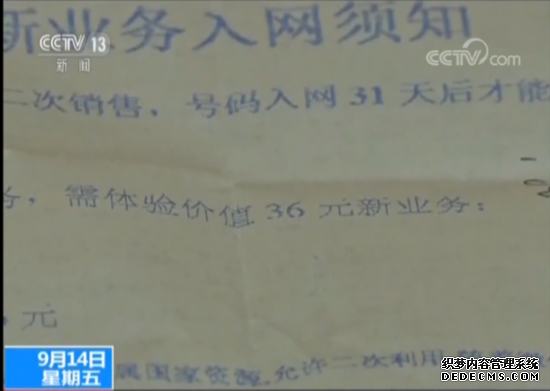 新业务入网须知
CCTV 13
新闻
CCTV.com
二次销售，号码入网 31 天后才能
务，需体验价值 36 元新业务：
元
属国家资源，允许二次利用
9月14日
星期五
织梦内容管理系统
DEDECMS.COM